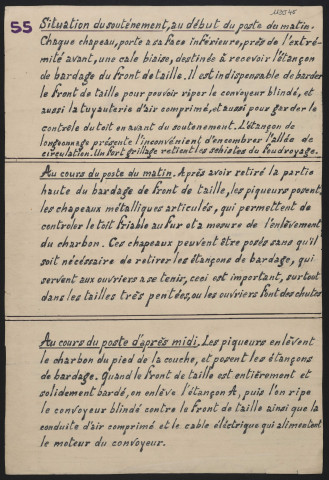 55
Situation du soutènement, au début du poste du matin.
Chaque chapeau, porte a sa face inférieure, près de l'extré-
mité avant, une cale biaise, destinée à recevoir l'étançon
de bardage du front de taille. Il est indispensable de barder
le front de taille pour pouvoir riper le conveyeur blindé, et
aussi la tuyauterie d'air comprimé, et aussi pour garder le
contrôle du toit en avant du soutenement. L'étançon de
longeonnage présente l'inconvénient d'encombrer l'allée de
circulation. Un fort grillage retient les schistes du foudroyage.
Au cours du poste du matin. Après avoir retiré la partie
haute du bardage de front de taille, les piqueurs posent,
les chapeaux métalliques articulés, qui permettent de
controler le toit friable au fur et a mesure de l'enlèvement
du charbon. Ces chapeaux peuvent être posés sans qu'il
soit nécessaire de retirer les étançons de bardage, qui
servent aux ouvriers a se tenir, ceci est important, surtout
dans les tailles très pentées, ou les ouvriers font des chutes
Au cours du poste d'après midi. Les piqueurs enlèvent
le charbon du pied de la couche, et posent les étançons
de bardage. Quand le front de taille est entièrement et
solidement bardé, on enlève l'étançon A, puis l'on ripe
le convoyeur blindé contre le front de taille ainsi que la
conduite d'air comprimé et le cable éléctrique qui alimentent
le moteur du convoyeur.